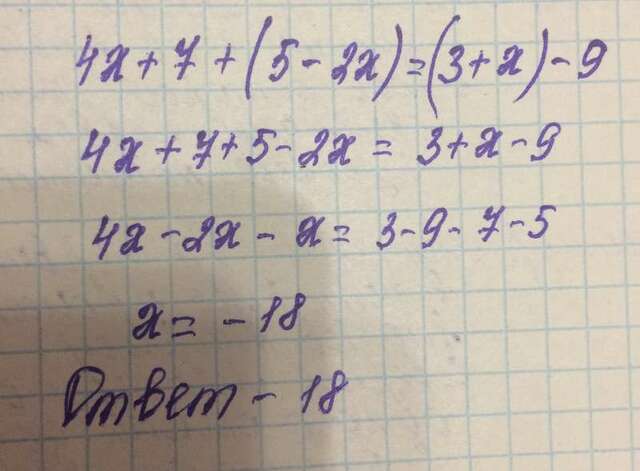 4x + 7 + (5 - 2x) = (3 + x) - 9
4x + 7 + 5 - 2x = 3 + x - 9
4x - 2x - x = 3 - 9 - 7 - 5
x = - 18
Ответ - 18